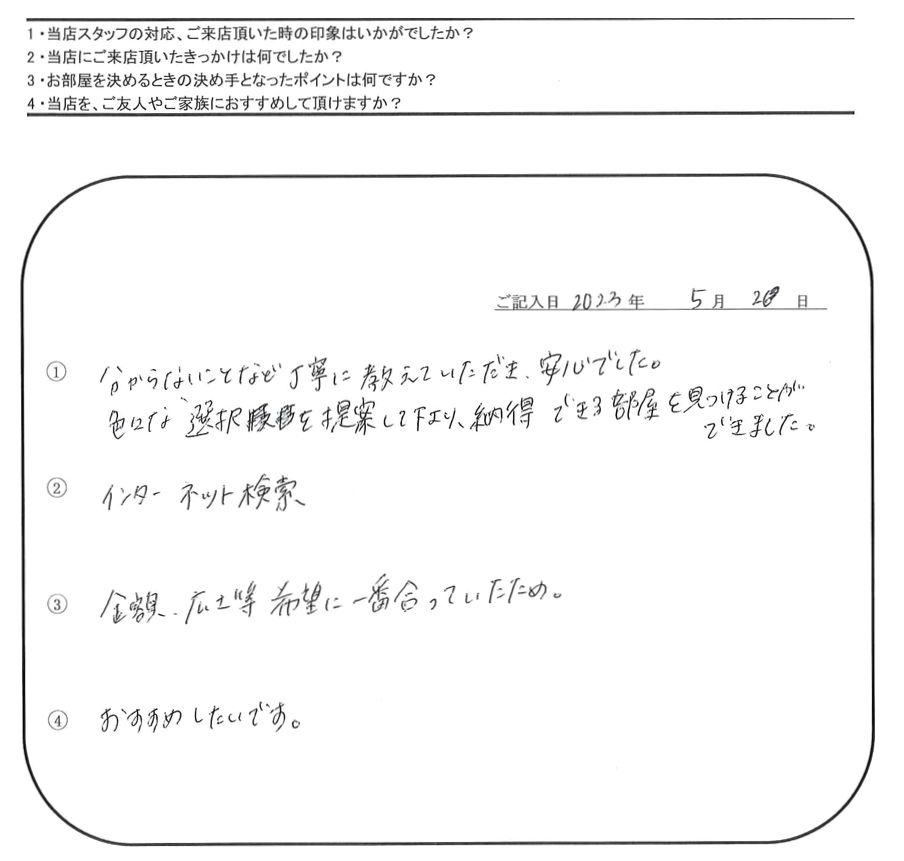 1・当店スタッフの対応、ご来店頂いた時の印象はいかがでしたか？
2・当店にご来店頂いたきっかけは何でしたか？
3・お部屋を決めるときの決め手となったポイントは何ですか？
4・当店を、ご友人やご家族におすすめして頂けますか？
ご記入日 2023年 5月 日
① 分からないことなど丁寧に教えていただき、安心でした。
色々な選択肢を提案して下さり、納得できる部屋を見つけることが
できました。
② インターネット検索、
③ 金額、広さ等 希望に一番合っていたため。
④ おすすめしたいです。